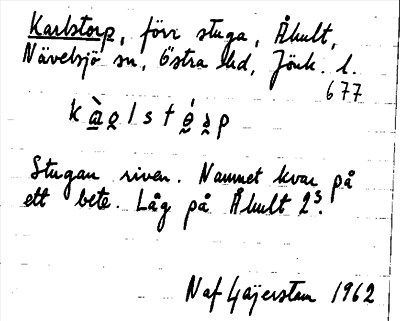 Karlstorp, förr stuga, Åhult,
Nävelsjö sn, Östra hd, Jönk. l.
677
Stugan riven. Namnet kvar på
ett bete. Låg på Åhult 2³.
Naf 1962